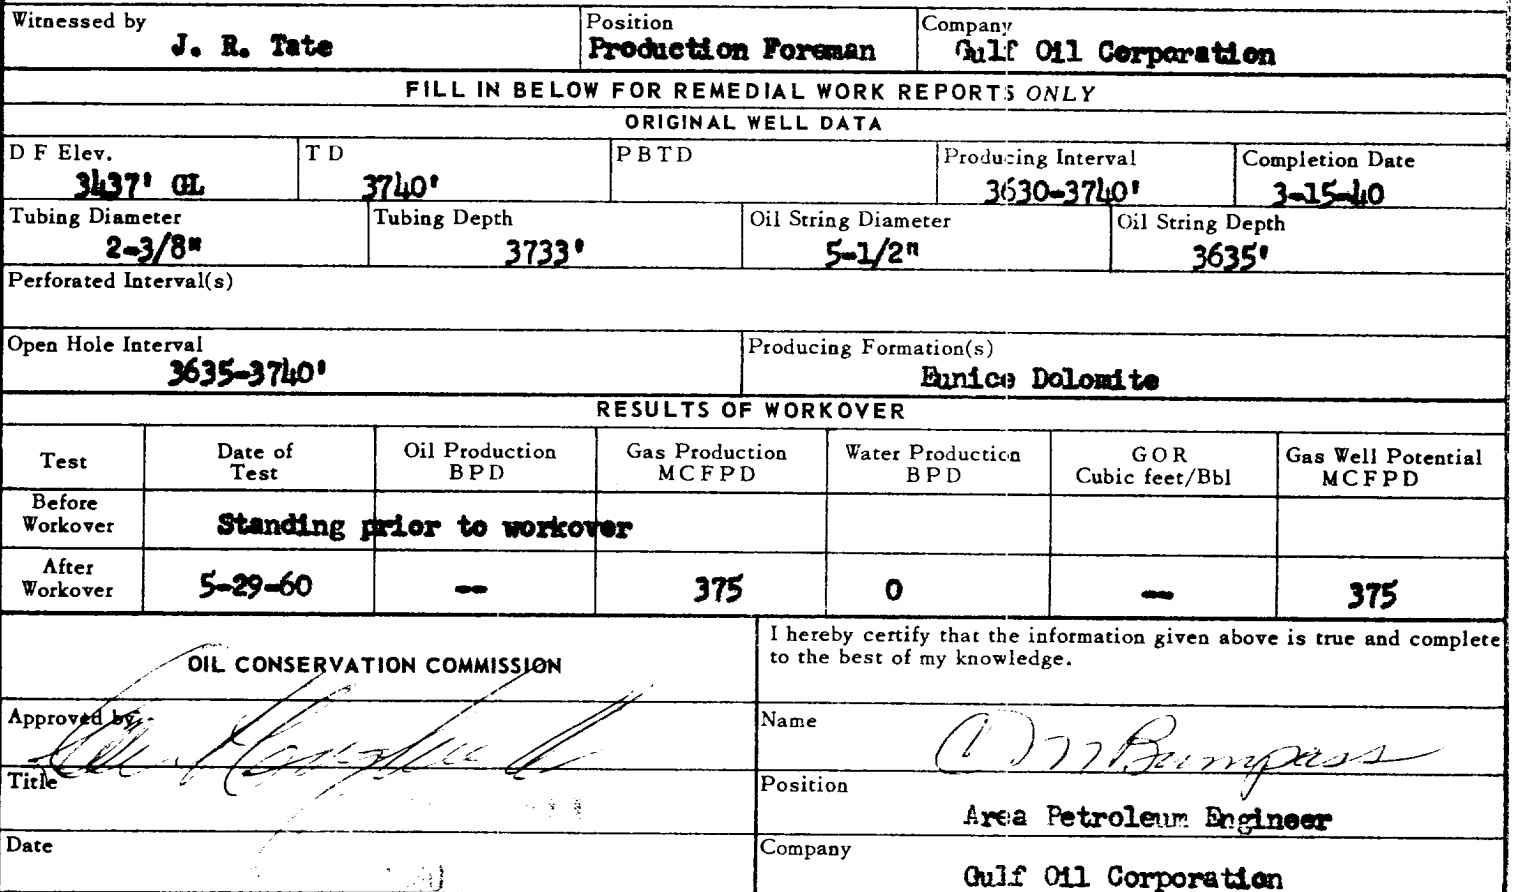 Witnessed by Position Company
J. R. Tate Production Foreman Gulf Oil Corporation
FILL IN BELOW FOR REMEDIAL WORK REPORTS ONLY
ORIGINAL WELL DATA
D F Elev. T D P B T D Producing Interval Completion Date
3437' GL 3740' 3630-3740' 3-15-40
Tubing Diameter Tubing Depth Oil String Diameter Oil String Depth
2-3/8" 3733' 5-1/2" 3635'
Perforated Interval(s)
Open Hole Interval Producing Formation(s)
3635-3740' Eunice Dolomite
RESULTS OF WORKOVER
Test Date of Test Oil Production BPD Gas Production MCFPD Water Production BPD GOR Cubic feet/Bbl Gas Well Potential MCFPD
Before Workover Standing prior to workover
After Workover 5-29-60 -- 375 0 -- 375
OIL CONSERVATION COMMISSION
I hereby certify that the information given above is true and complete
to the best of my knowledge.
Approved by
Name C M Bumpass
Title
Position
Area Petroleum Engineer
Date
Company
Gulf Oil Corporation